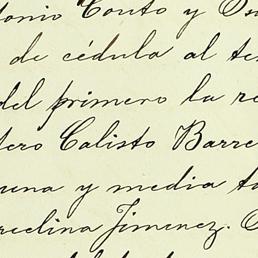 tonio Couto y Os
de cédula al te
del primero la re
tero Calisto Barre
una y media ta
rcelina Jimenez.